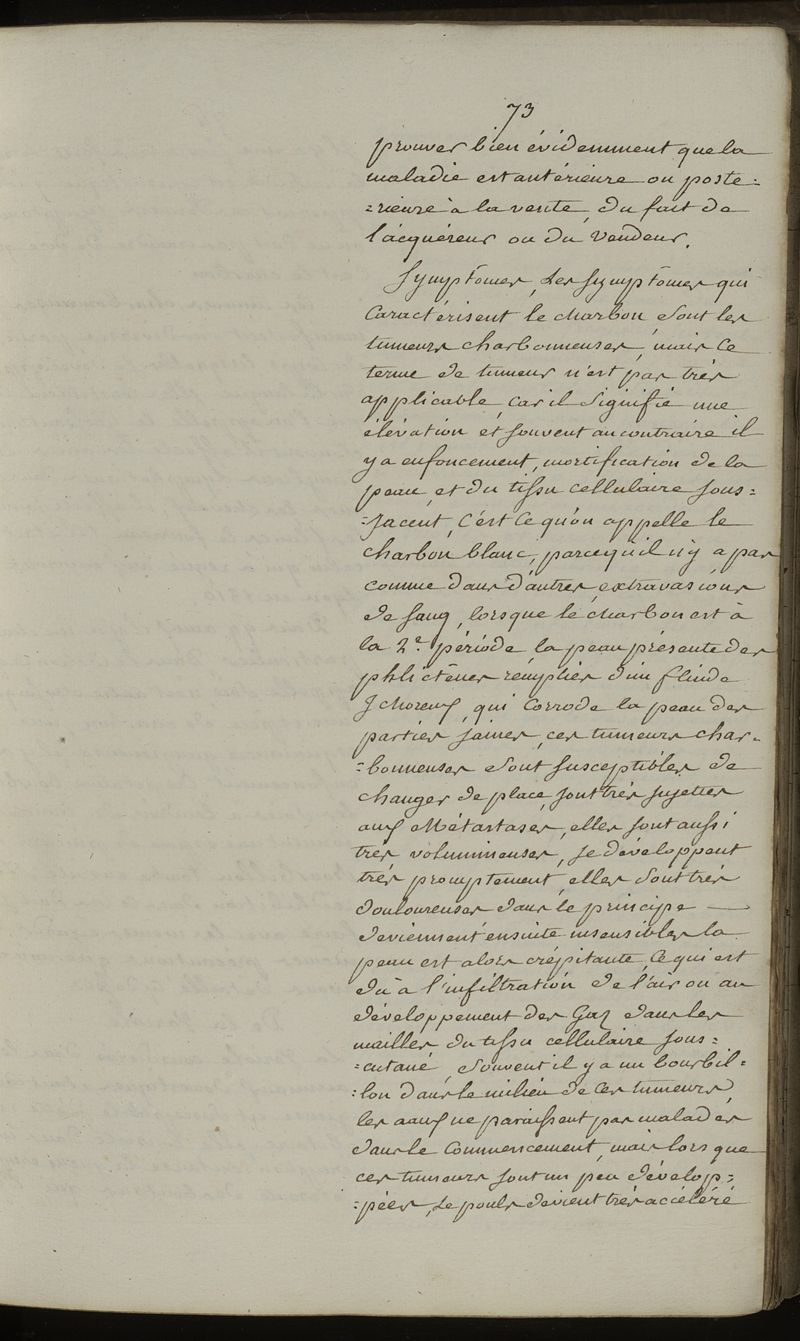 73
prouver bien évidemment que la
maladie est antérieure ou posté=
=rieure à la vente, du fait de
l'acquéreur ou du Vendeur.
Symptômes, Les symptômes qui
Caractérisent le charbon sont les
tumeurs charbonneuses, mais ce
terme de tumeur n'est pas très
applicable, car il signifie une
élévation et souvent au contraire il
y a enfoncement, mortification de la
peau, et du tissu cellulaire sous=
=Jacent, c'est ce qu'on appelle le
charbon blanc, parcequ'il n'y a pas
comme dans d'autres, extravasions
de sang, lorsque le charbon est à
la 2.e période, la peau présente des
phlictènes remplies d'un fluide
Ichoreux, qui corrode la peau des
parties saines, ces tumeurs char=
=bonneuses sont susceptibles de
changer de place, sont très sujettes
aux Métastases, elles sont aussi
très volumineuses, se développent
très promptement, elles sont très
douloureuses dans le principe —
deviennent ensuite insensibles la
peau est alors crépitante, ce qui est
dû à l'infiltration de l'air ou au
développement des Gaz dans les
mailles du tissu cellulaire sous=
=cutané, souvent il y a un bourbil=
=lon dans le milieu de ces tumeurs,
les aaux ne paraissent pas malades
dans le Commencement, mais lors que
ces tumeurs sont un peu dévelop=
=pées, Le pouls devient très accéléré